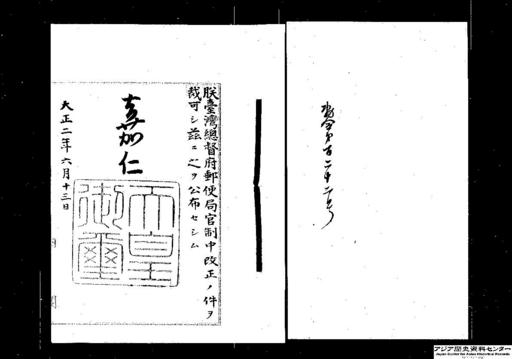 勅令第百二十二号
朕臺灣總督府郵便局官制中改正ノ件ヲ
裁可シ茲ニ之ヲ公布セシム
嘉仁
天皇
御璽
大正二年六月十三日
内閣
アジア歴史資料センター
Japan Center for Asian Historical Records